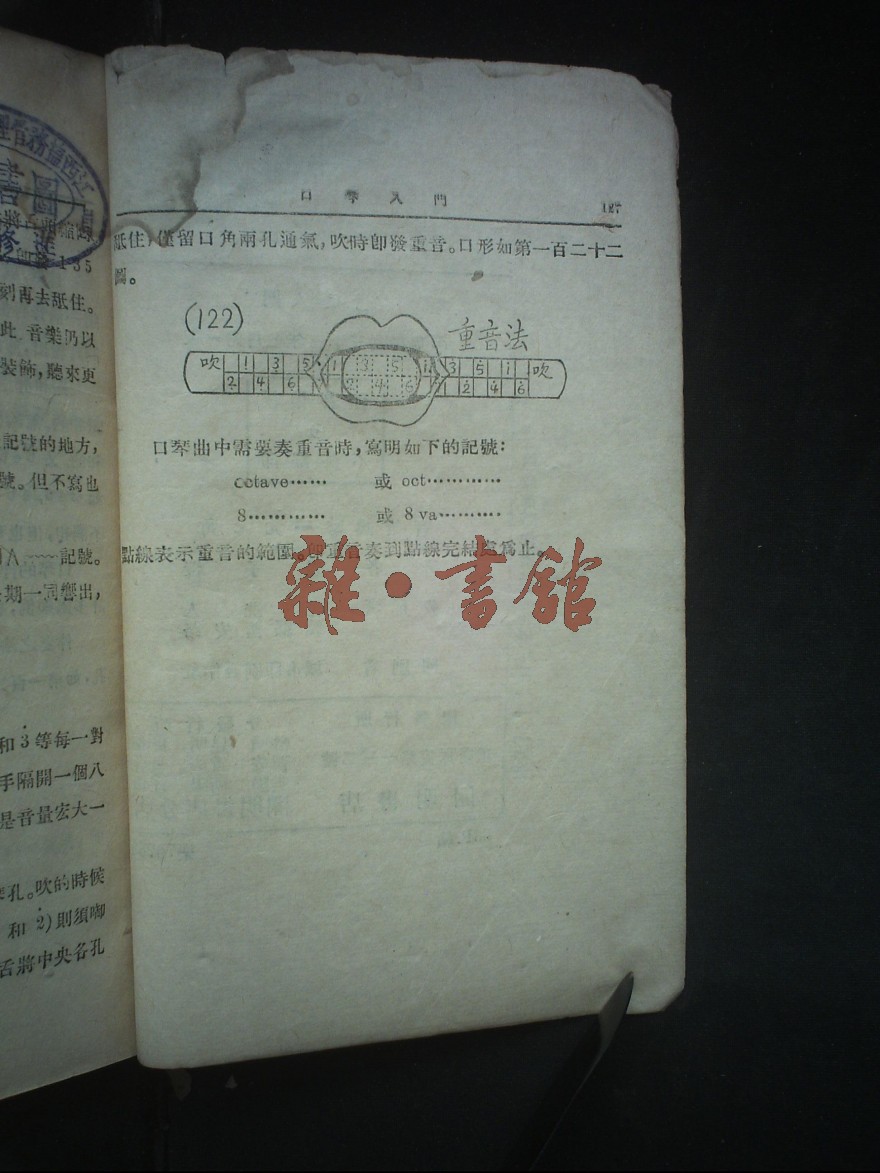 口琴入門
127
舐住,僅留口角兩孔通氣,吹時卽發重音。口形如第一百二十二
圖。
(122)
重音法
吹 1 3 5 1 3 5 1 3 5 1 吹
2 4 6 2 4 6 2 4 6
口琴曲中需要奏重音時,寫明如下的記號:
octave…… 或 oct…………
8………… 或 8 va………
點線表示重音的範圍。卽重音奏到點線完結處爲止。
雜·書館
135
刻再去舐住。
此 音樂仍以
裝飾,聽來更
記號的地方,
號。但不寫也
記號。
期一同響出,
和 3 等每一對
手隔開一個八
是音量宏大一
孔。吹的時候
和 2)則須啣
舌將中央各孔